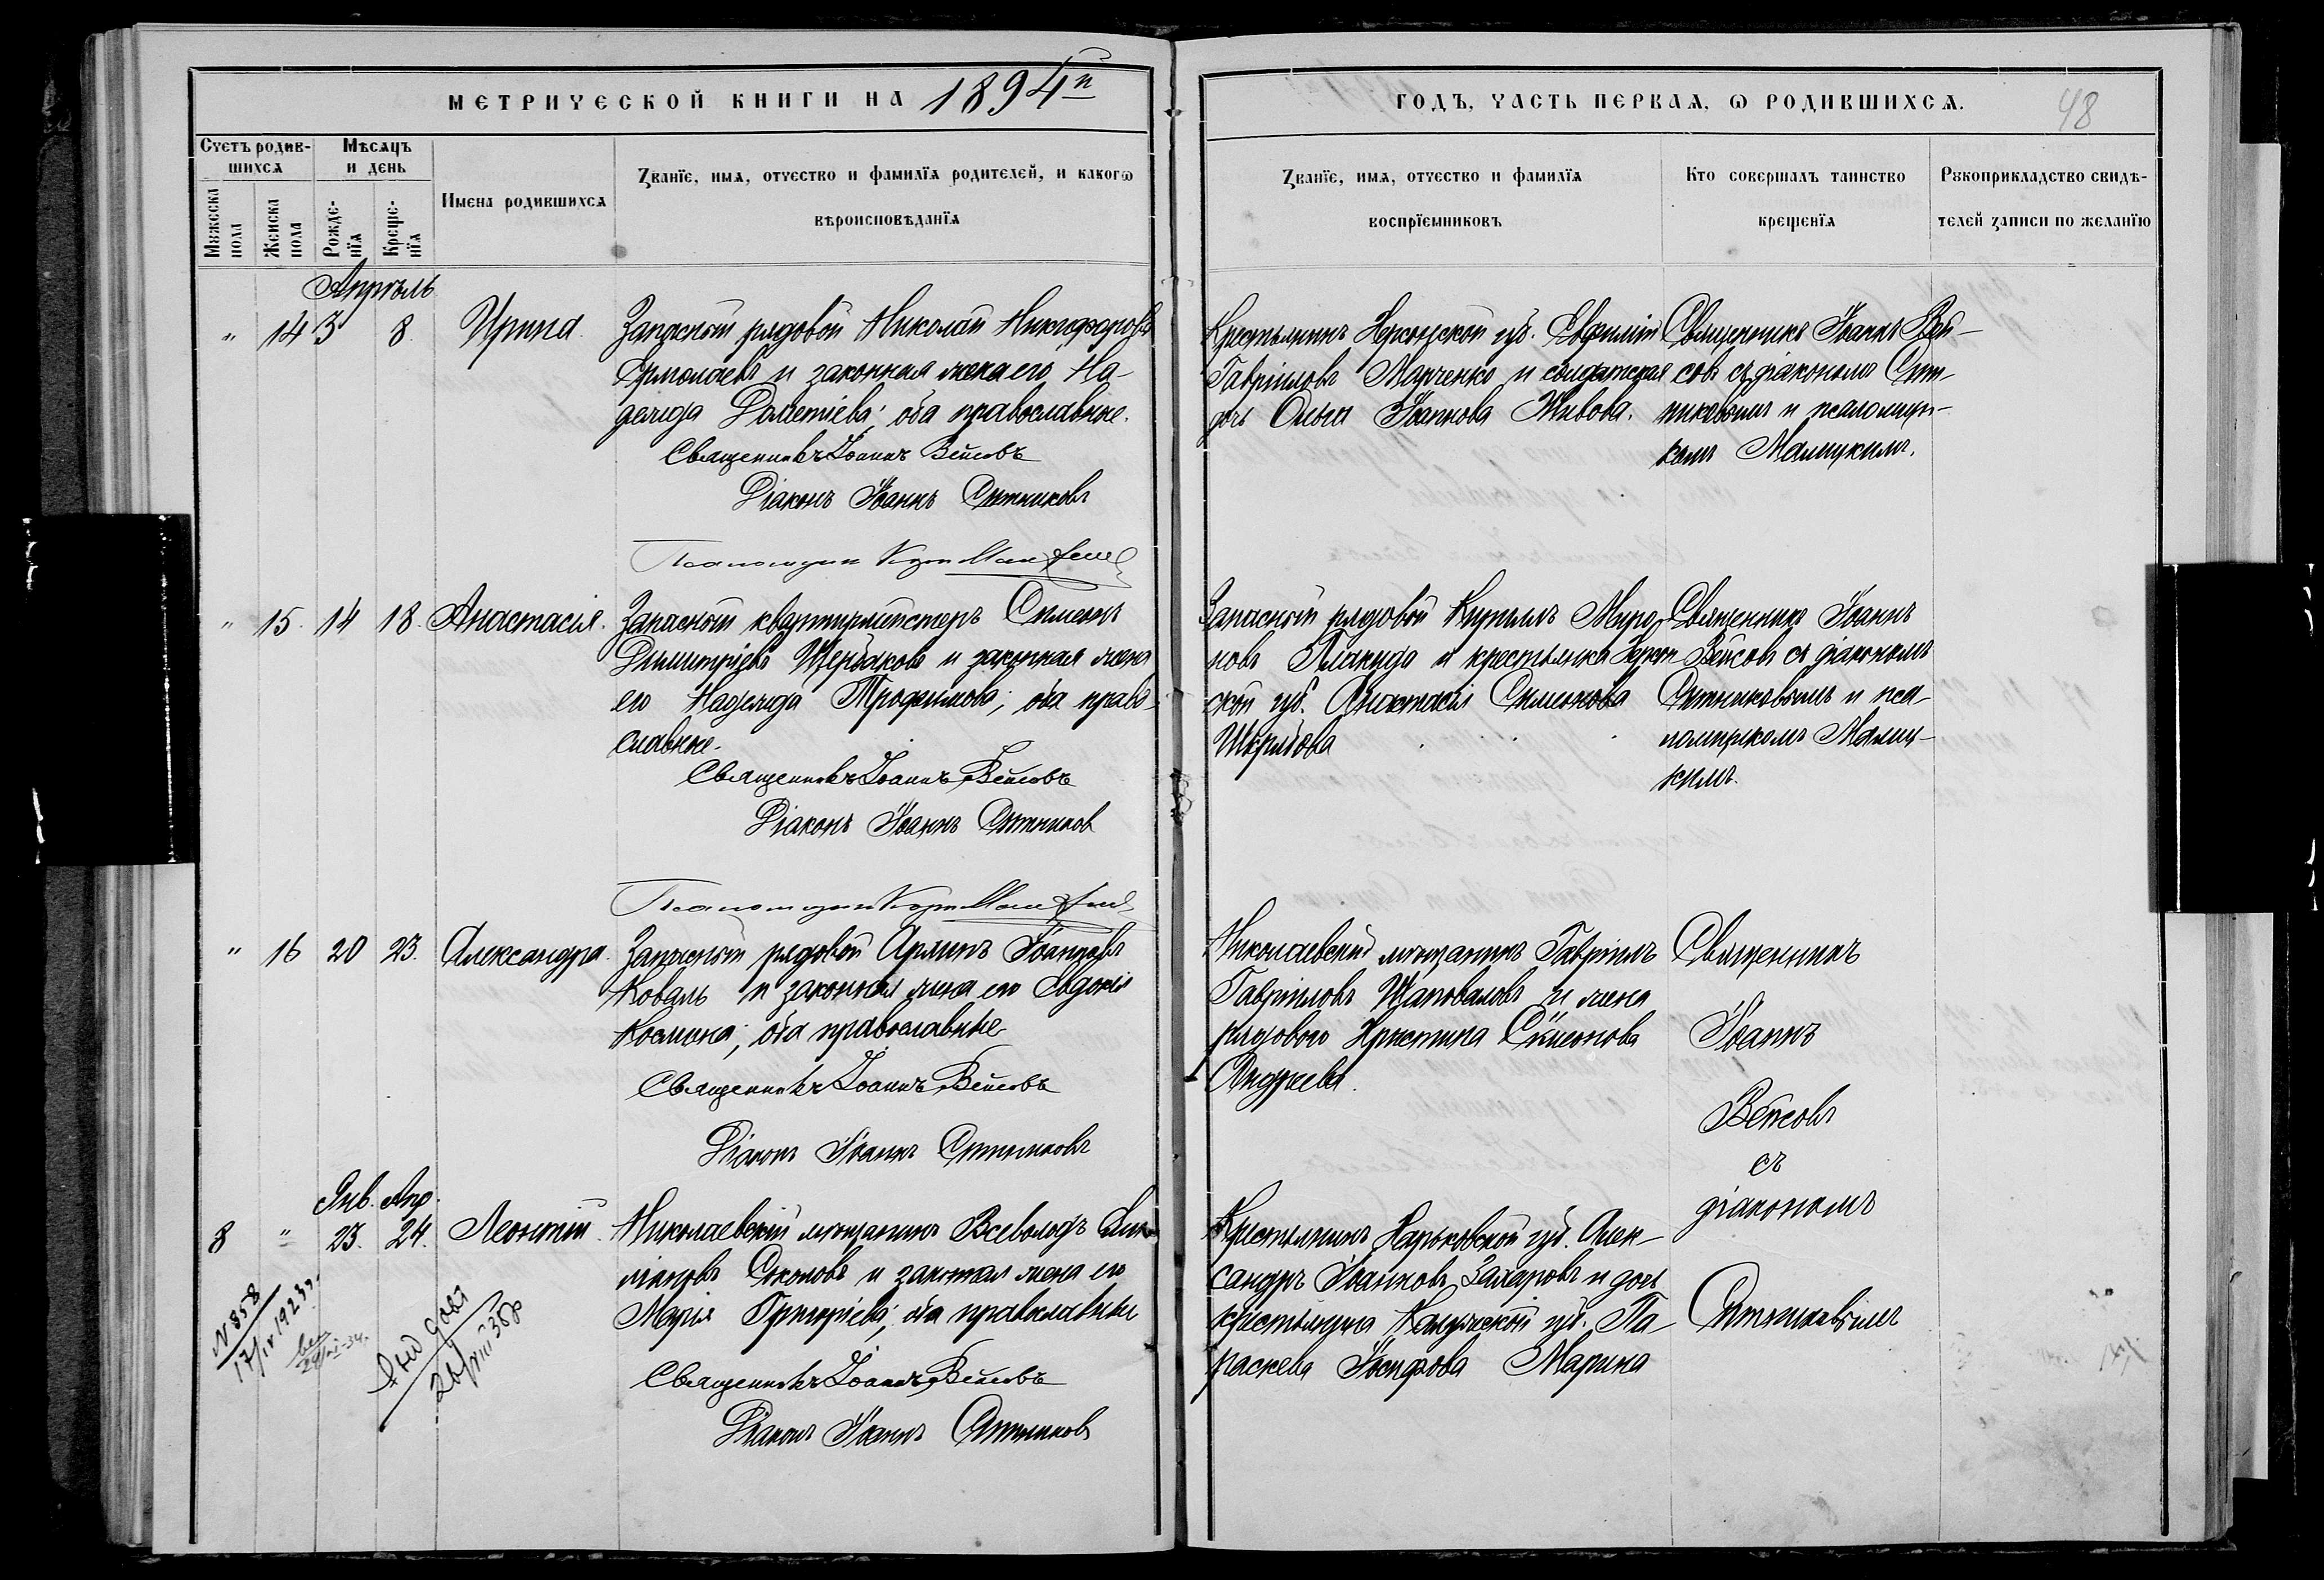 МЕТРИЧЕСКОЙ КНИГИ НА 1894й
ГОДЪ, ЧАСТЬ ПЕРВАЯ, Ѡ РОДИВШИХСЯ.
48
Счетъ родив-
шихся
Мѣсяцъ
и день
Мужеска пола
Женска пола
Рожде-
нїя
Креще-
нїя
Имена родившихся
Званїе, имя, отчество и фамилїя родителей, и какогѡ
вѣроисповѣданїя
Званїе, имя, отчество и фамилїя
воспрїемниковъ
Кто совершалъ таинство
крещенїя
Рукоприкладство свидѣ-
телей записи по желанїю
Апрѣль
" 14 3 8. Ирина.
Запасный рядовой Николай Никифоровъ
Ермолаевъ и законная жена его На-
дежда Дометіева; оба православные.
Священникъ Іоаннъ Вейсовъ
Діаконъ Іоаннъ Ситниковъ
Крестьянинъ Херсонской губ. Евфимій
Гавріиловъ Марченко и солдатская
дочь Ольга Іванова Живова.
Священникъ Іоаннъ Вей-
совъ съ діакономъ Сит-
никовымъ и псаломщи-
комъ Малицкимъ.
" 15. 14 18. Анастасія.
Запасный квартирмистеръ Симеонъ
Димитріевъ Щербаковъ и законная жена
его Надежда Трофимова; оба право-
славные.
Священникъ Іоаннъ Вейсовъ
Діаконъ Іоаннъ Ситников
Запасный рядовой Кириллъ Миро-
новъ Плакида и крестьянка Херсон
ской губ. Анастасія Симеонова
Шкрябова
Священникъ Іоаннъ
Вейсовъ съ діакономъ
Ситниковымъ и пса-
ломщикомъ Малиц-
кимъ.
" 16 20 23. Александра.
Запасный рядовой
Коваль и законная жена его Евдокія
Космина; оба православные
Священникъ Іоаннъ Вейсовъ
Діаконъ Іоаннъ Ситниковъ
Николаевскій мѣщанинъ Гавріилъ
Гавріиловъ Шаповаловъ и жена
рядового Христина Симеонова
Андреева.
Священникъ
Іоаннъ
Вейсовъ
съ
діакономъ
Ситниковымъ
Янв. Апр.
8 " 23. 24. Леонтій.
Николаевскій мѣщанинъ Всеволодъ
Соколовъ и законная жена его
Марія Григоріева; оба православные
Священникъ Іоаннъ Вейсовъ
Діаконъ Іоаннъ Ситников
Крестьянинъ Харьковской губ. Алек-
сандръ Іванновъ Захаровъ и дочь
крестьянина Калужской губ. Па-
раскева Іосифова Марина
N 858
17/IV 1923 г.